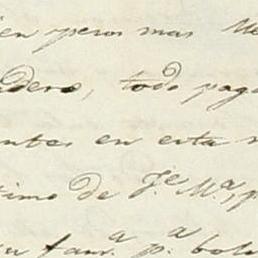 en pesos mas
dero, todo paga
ntes en esta
timo de Je. Ma., p
fav.a p.a